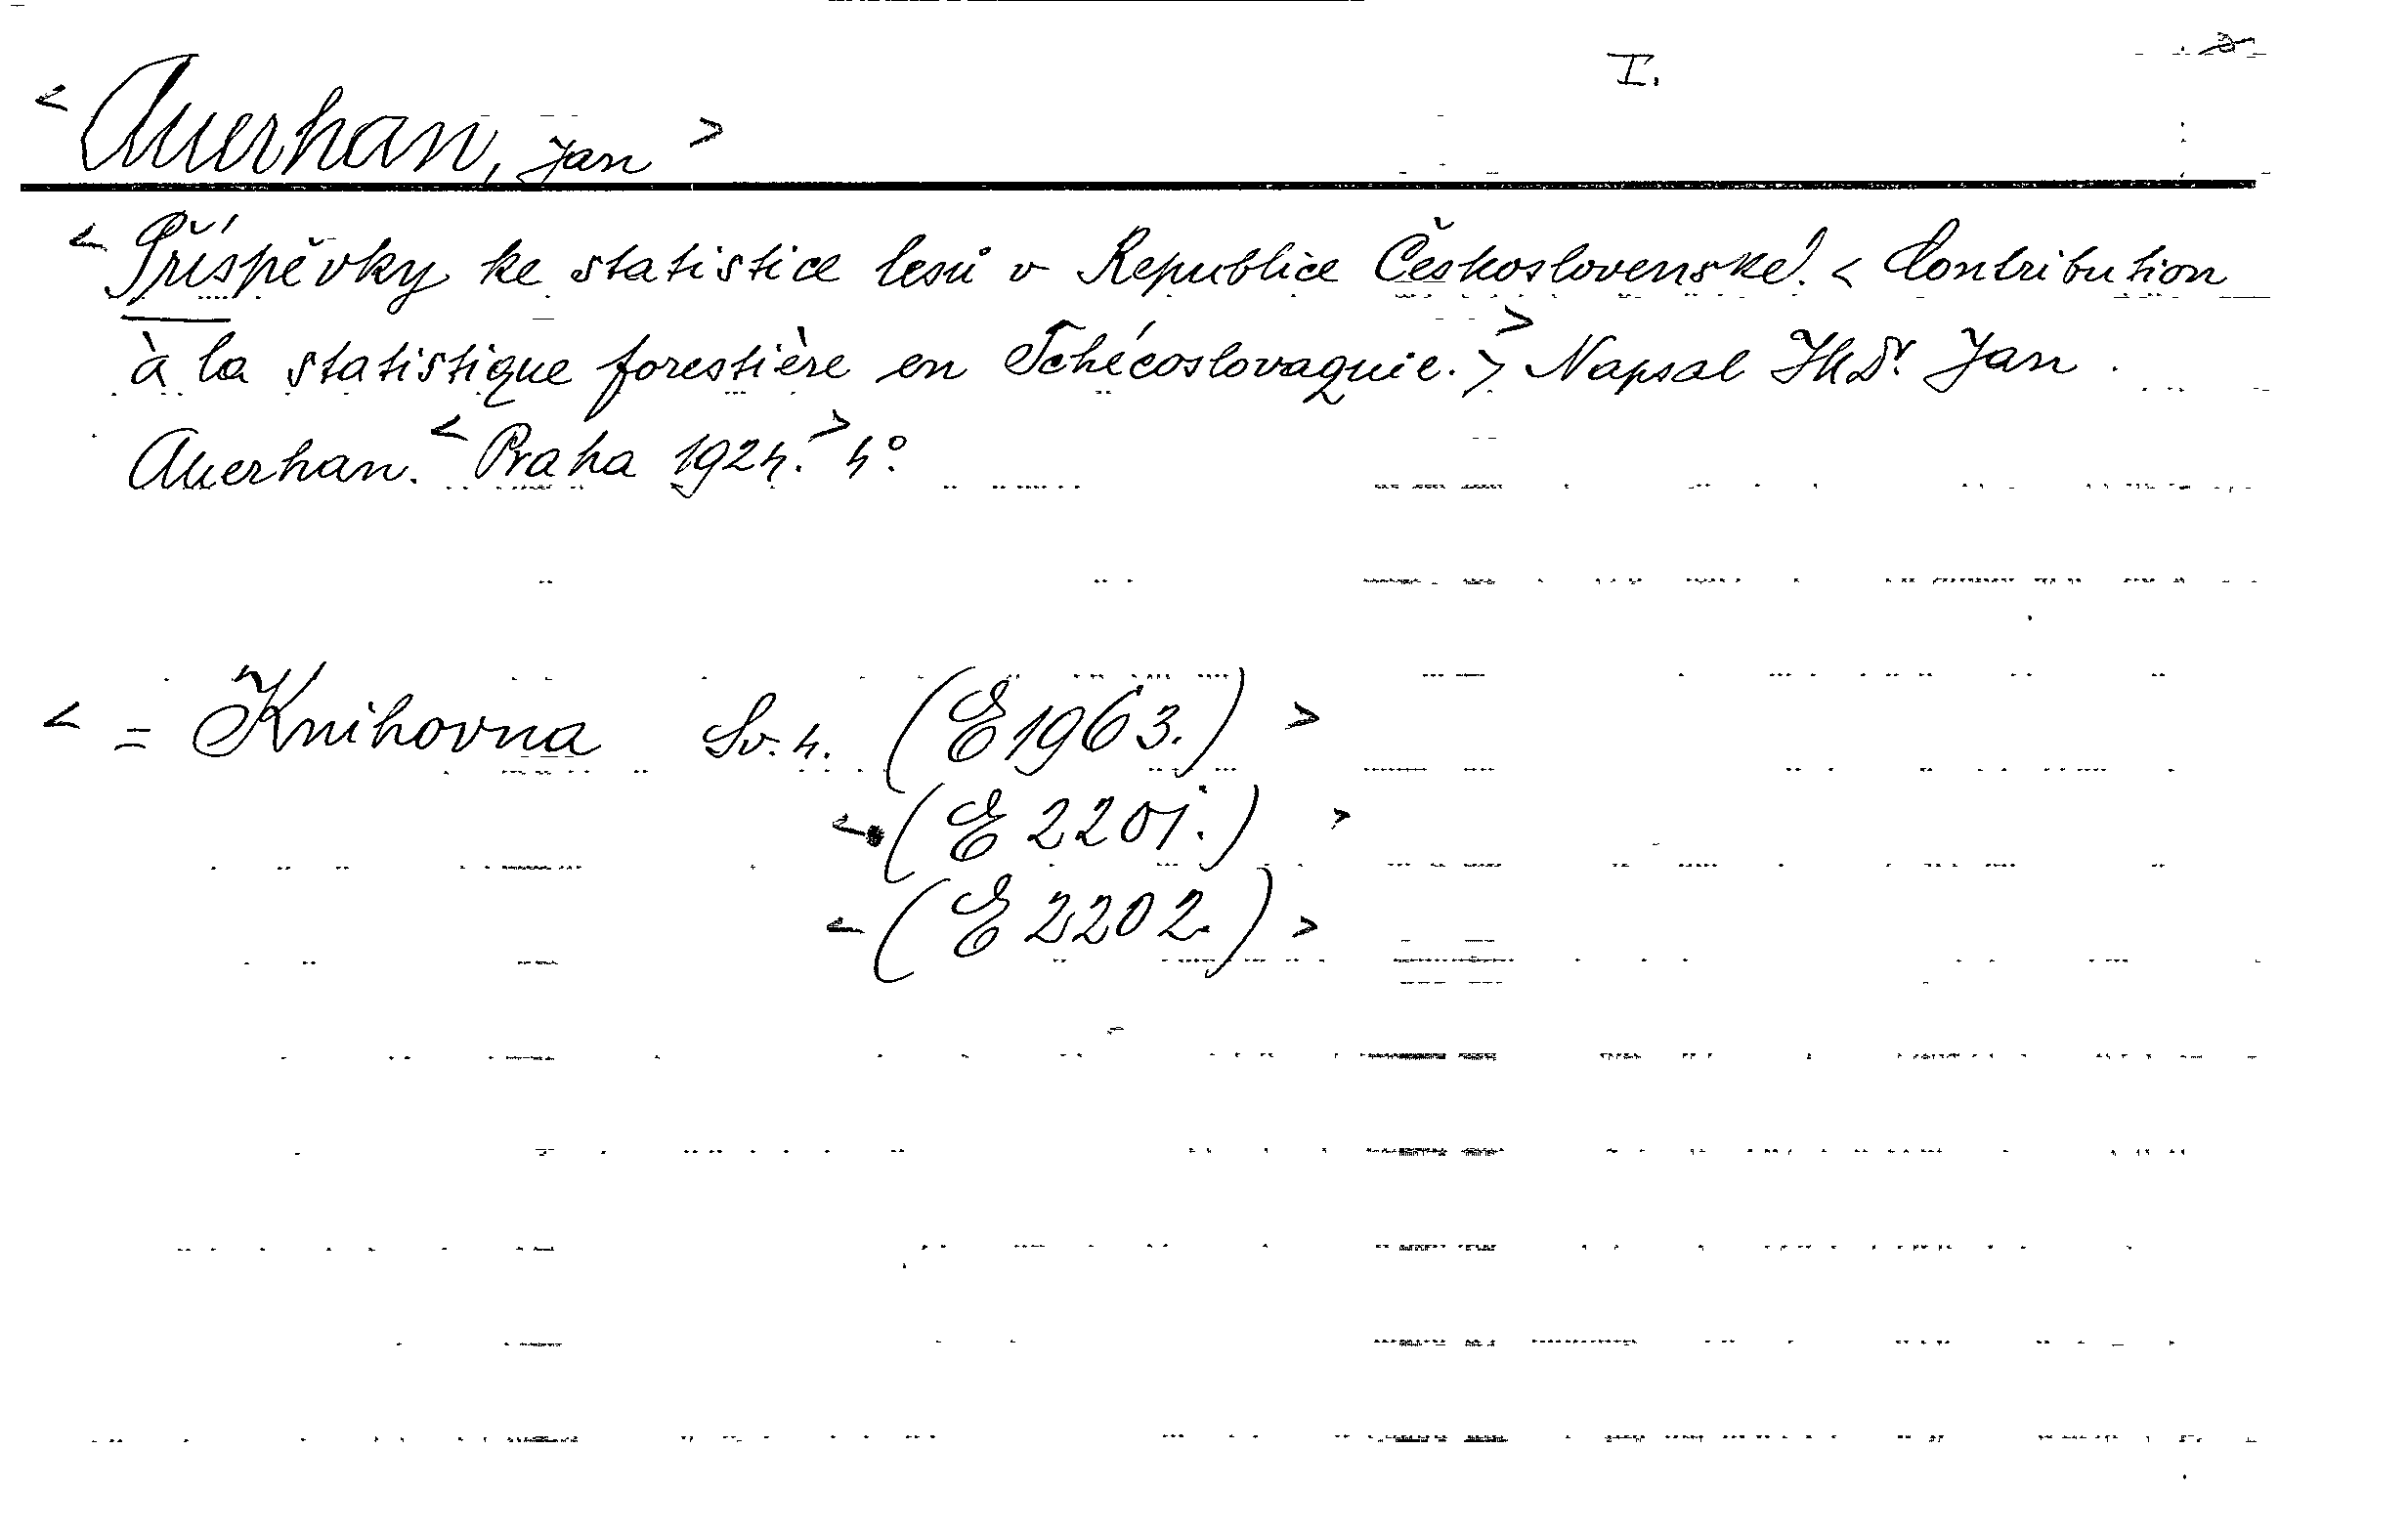 I.
< Auerhan, Jan >
< Příspěvky ke statistice lesů v Republice Československé. < Contribution
à la statistique forestière en Tchécoslovaquie. > > Napsal JUDr. Jan
Auerhan. < Praha 1924. > 4°.
< = Knihovna Sv. 4. (E 1963.) >
< (E 2201.) >
< (E 2202.) >